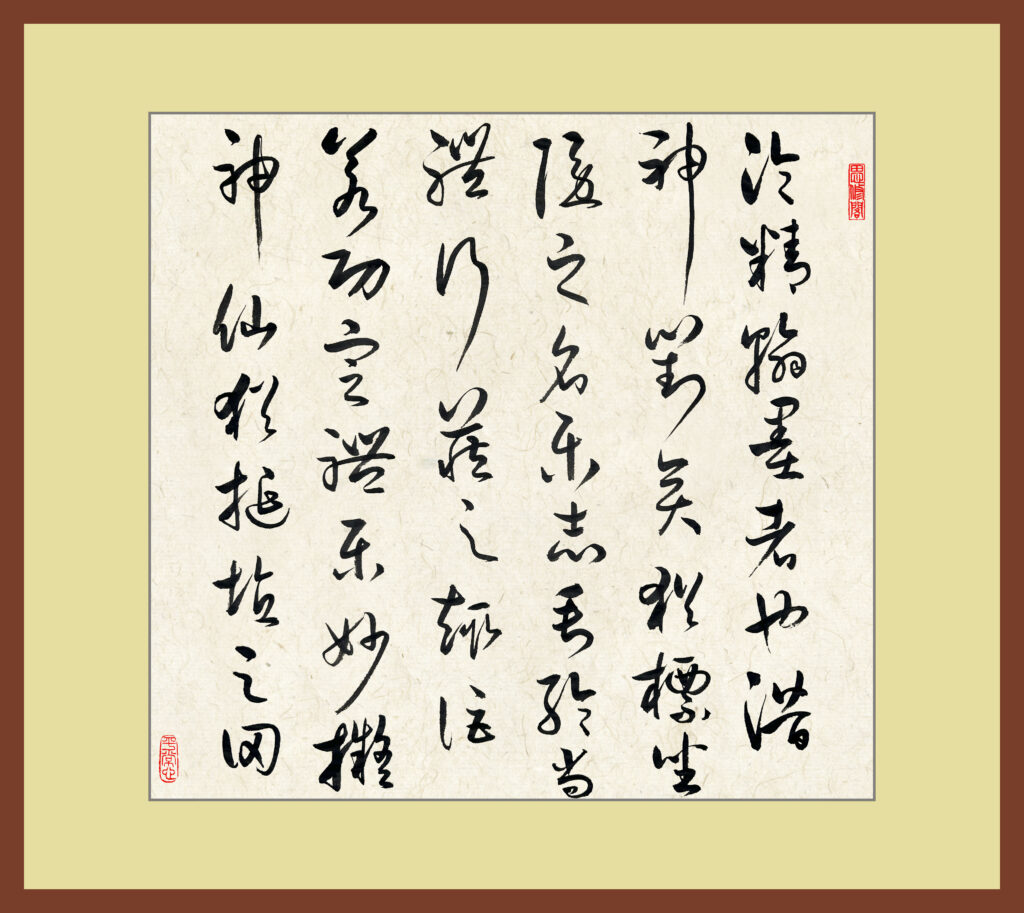 淪精翰墨者也潛
神對奕猶標坐
隱之名樂志垂綸尚
體行藏之趣詎
若功定禮樂妙擬
神仙猶挻埴之罔